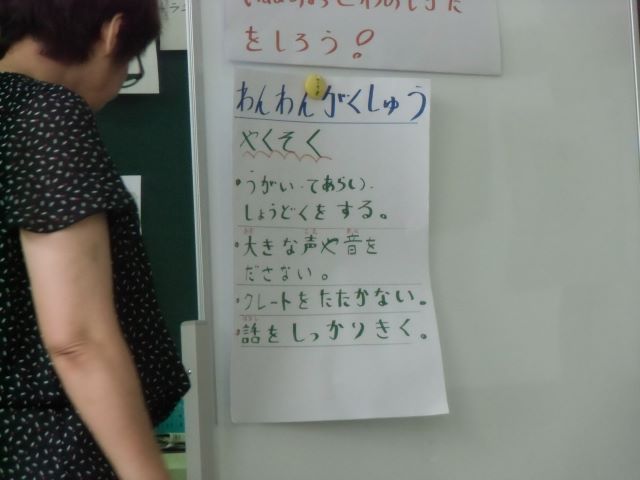 をしろう!
わんわんがくしゅう
やくそく
・うがい・てあらい・
しょうどくをする。
・大きな声や音を
ださない。
・クレートをたたかない。
・話をしっかりきく。